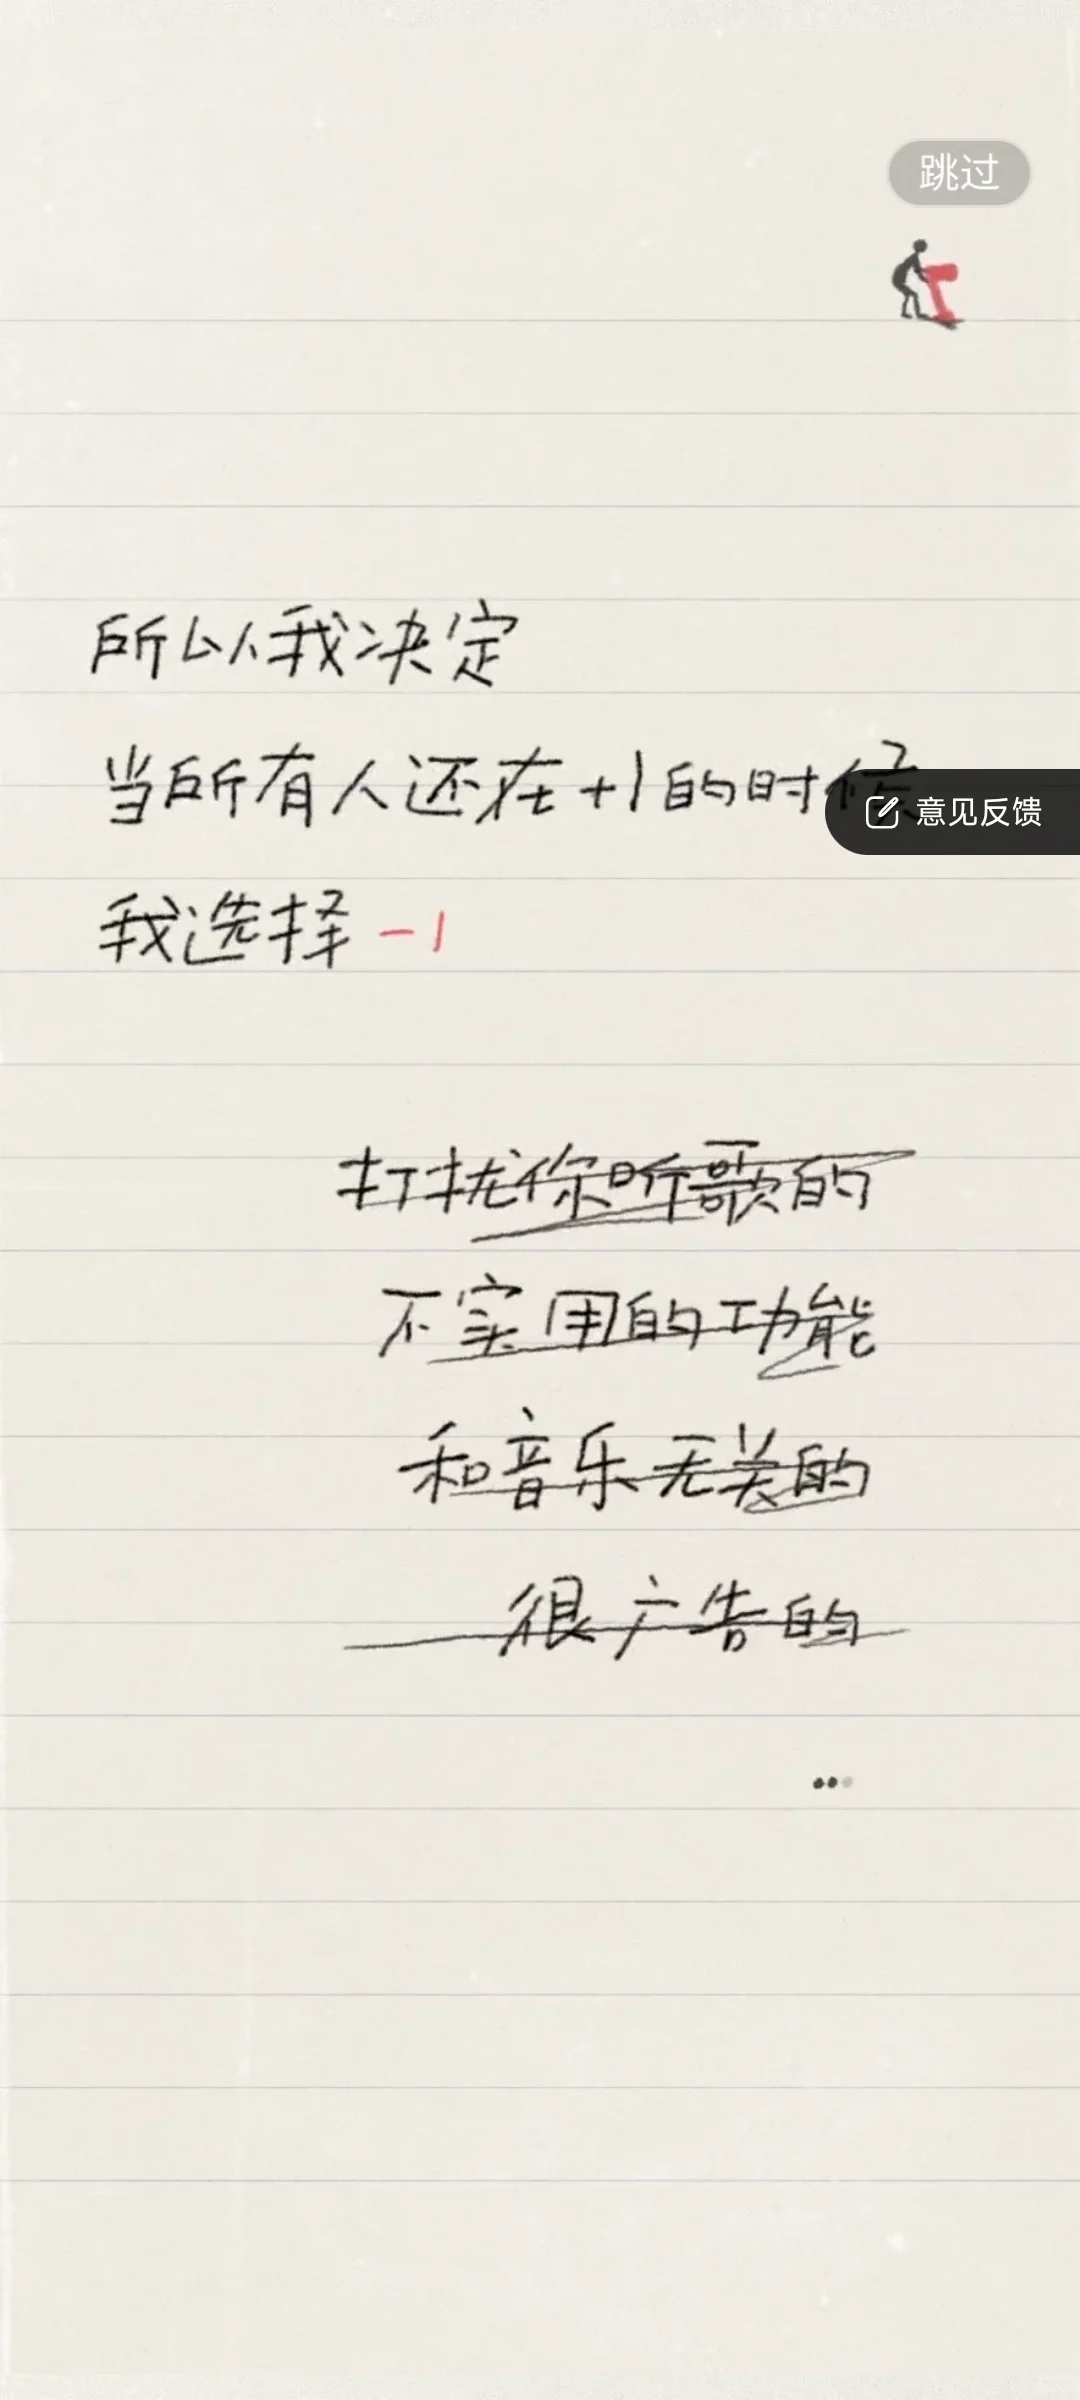 跳过
所以我决定
当所有人还在+1的时候
意见反馈
我选择-1
打扰你听歌的
不实用的功能
和音乐无关的
很广告的